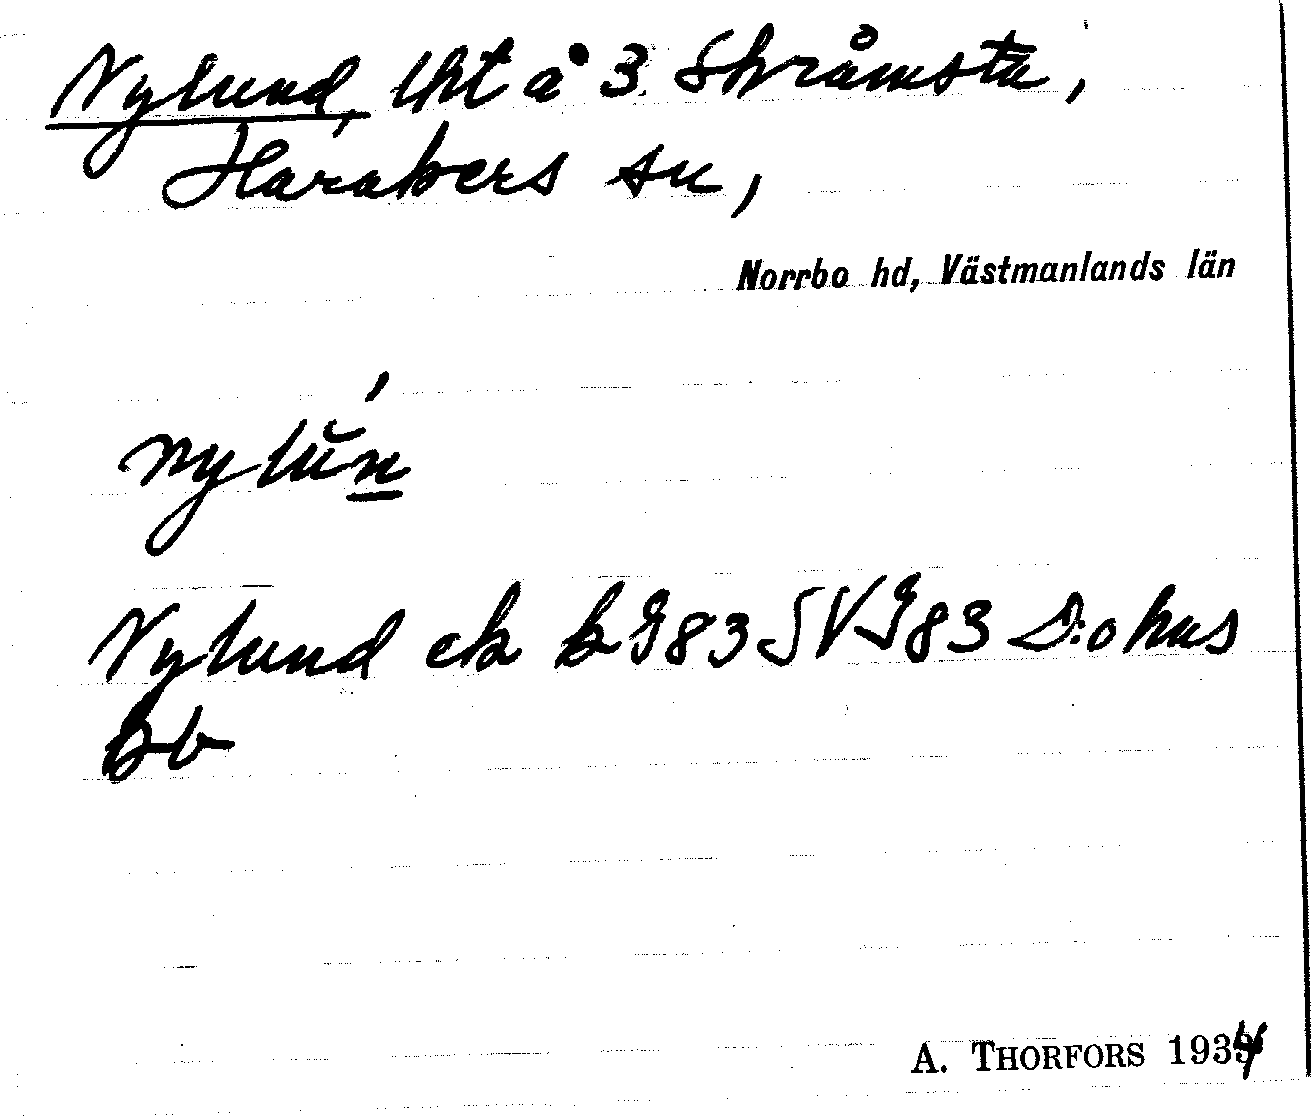 Nylund, lht å 3 Skråmsta,
Harakers sn,
Norrbo hd, Västmanlands län
nylŭ́n
Nylund ek bl 83 SV J 83 D:o hus
bb
A. THORFORS 1934